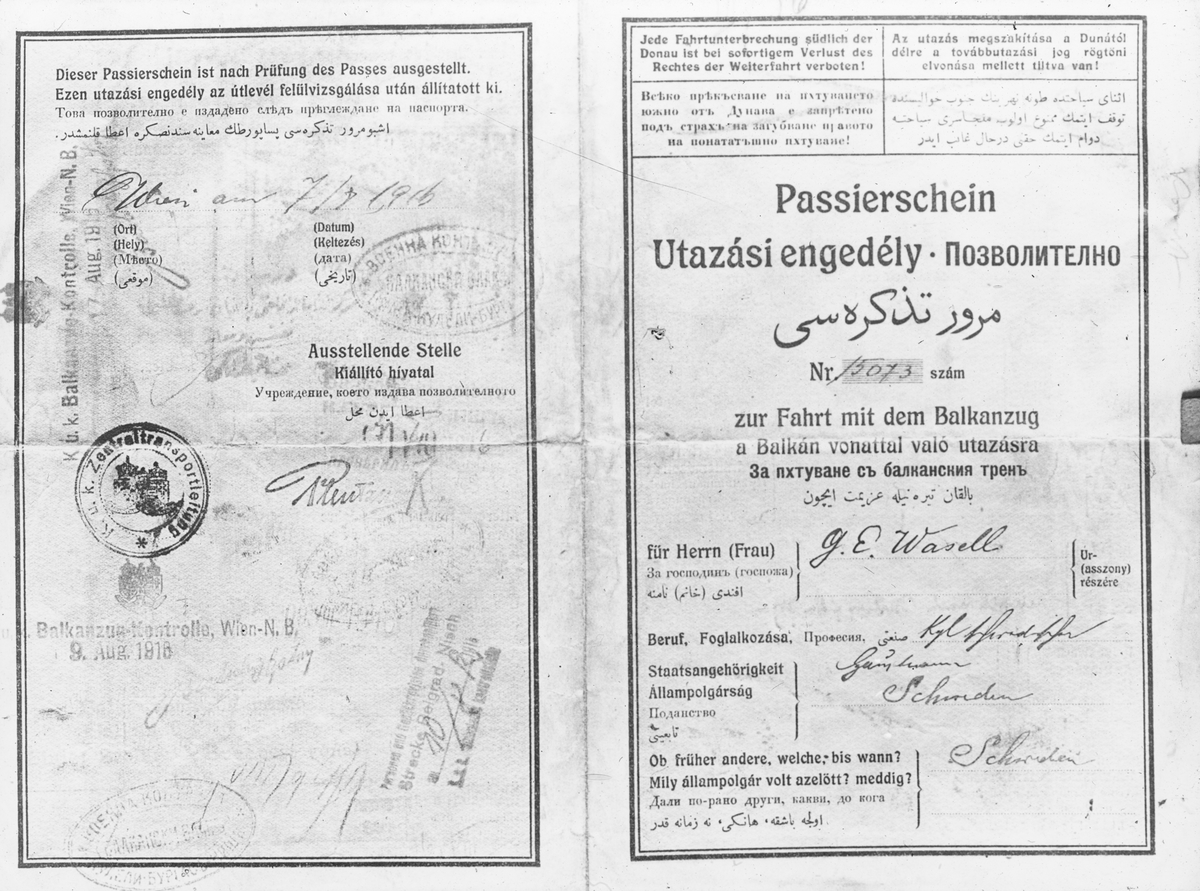 Dieser Passierschein ist nach Prüfung des Passes ausgestellt.
Ezen utazási engedély az útlevél felülvizsgálása után állítatott ki.
Това позволително е издадено слѣдъ прѣглеждане на паспорта.
اشبو مرور تذكره‌سى پساپورطك معاينه سندنصكره اعطا قلنمشدر.
Wien am 7/8 1916
(Ort)
(Hely)
(Мѣсто)
(موقعى)
(Datum)
(Keltezés)
(дата)
(تاريخى)
K. u. k. Balkanzug-Kontrolle, Wien-N. B.
7. Aug. 191
Ausstellende Stelle
Kiállító hivatal
Учреждение, което издава позволителното
اعطا ايدن محل
K. u. k. Zentraltransportleitung
Balkanzug-Kontrolle, Wien-N. B.
9. Aug. 1916
Strecke Belgrad-Nisch
Jede Fahrtunterbrechung südlich der
Donau ist bei sofortigem Verlust des
Rechtes der Weiterfahrt verboten!
Az utazás megszakítása a Dunától
délre a továbbutazási jog rögtöni
elvonása mellett tiltva van!
Всѣко прѣкъсване на пхтуването
южно отъ Дунава е запрѣтено
подъ страхъ на загубване правото
на понататъшно пхтуване!
اثناى سياحتده طونه نهرينك جنوب حواليسنده
توقف ايتمك ممنوع اولوب
دوام ايتمك حقى درحال غائب ايدر
Passierschein
Utazási engedély · Позволително
مرور تذكره‌سى
Nr. 15073 szám
zur Fahrt mit dem Balkanzug
a Balkán vonattal való utazásra
За пхтуване съ балканския тренъ
بالقان تيره‌نيله عزيمت ايچون
für Herrn (Frau)
За господинъ (госпожа)
افندى (خانم) نامنه
G. E. Wasell
Úr-
(asszony)
részére
Beruf, Foglalkozása, Професия, صنعتى Kgl schwedischer
Staatsangehörigkeit
Állampolgárság
Поданство
تابعيتى
Schweden
Ob früher andere, welche, bis wann?
Mily állampolgár volt azelött? meddig?
Дали по-рано други, какви, до кога
اولجه باشقه، هانكى، نه زمانه قدر
Schweden